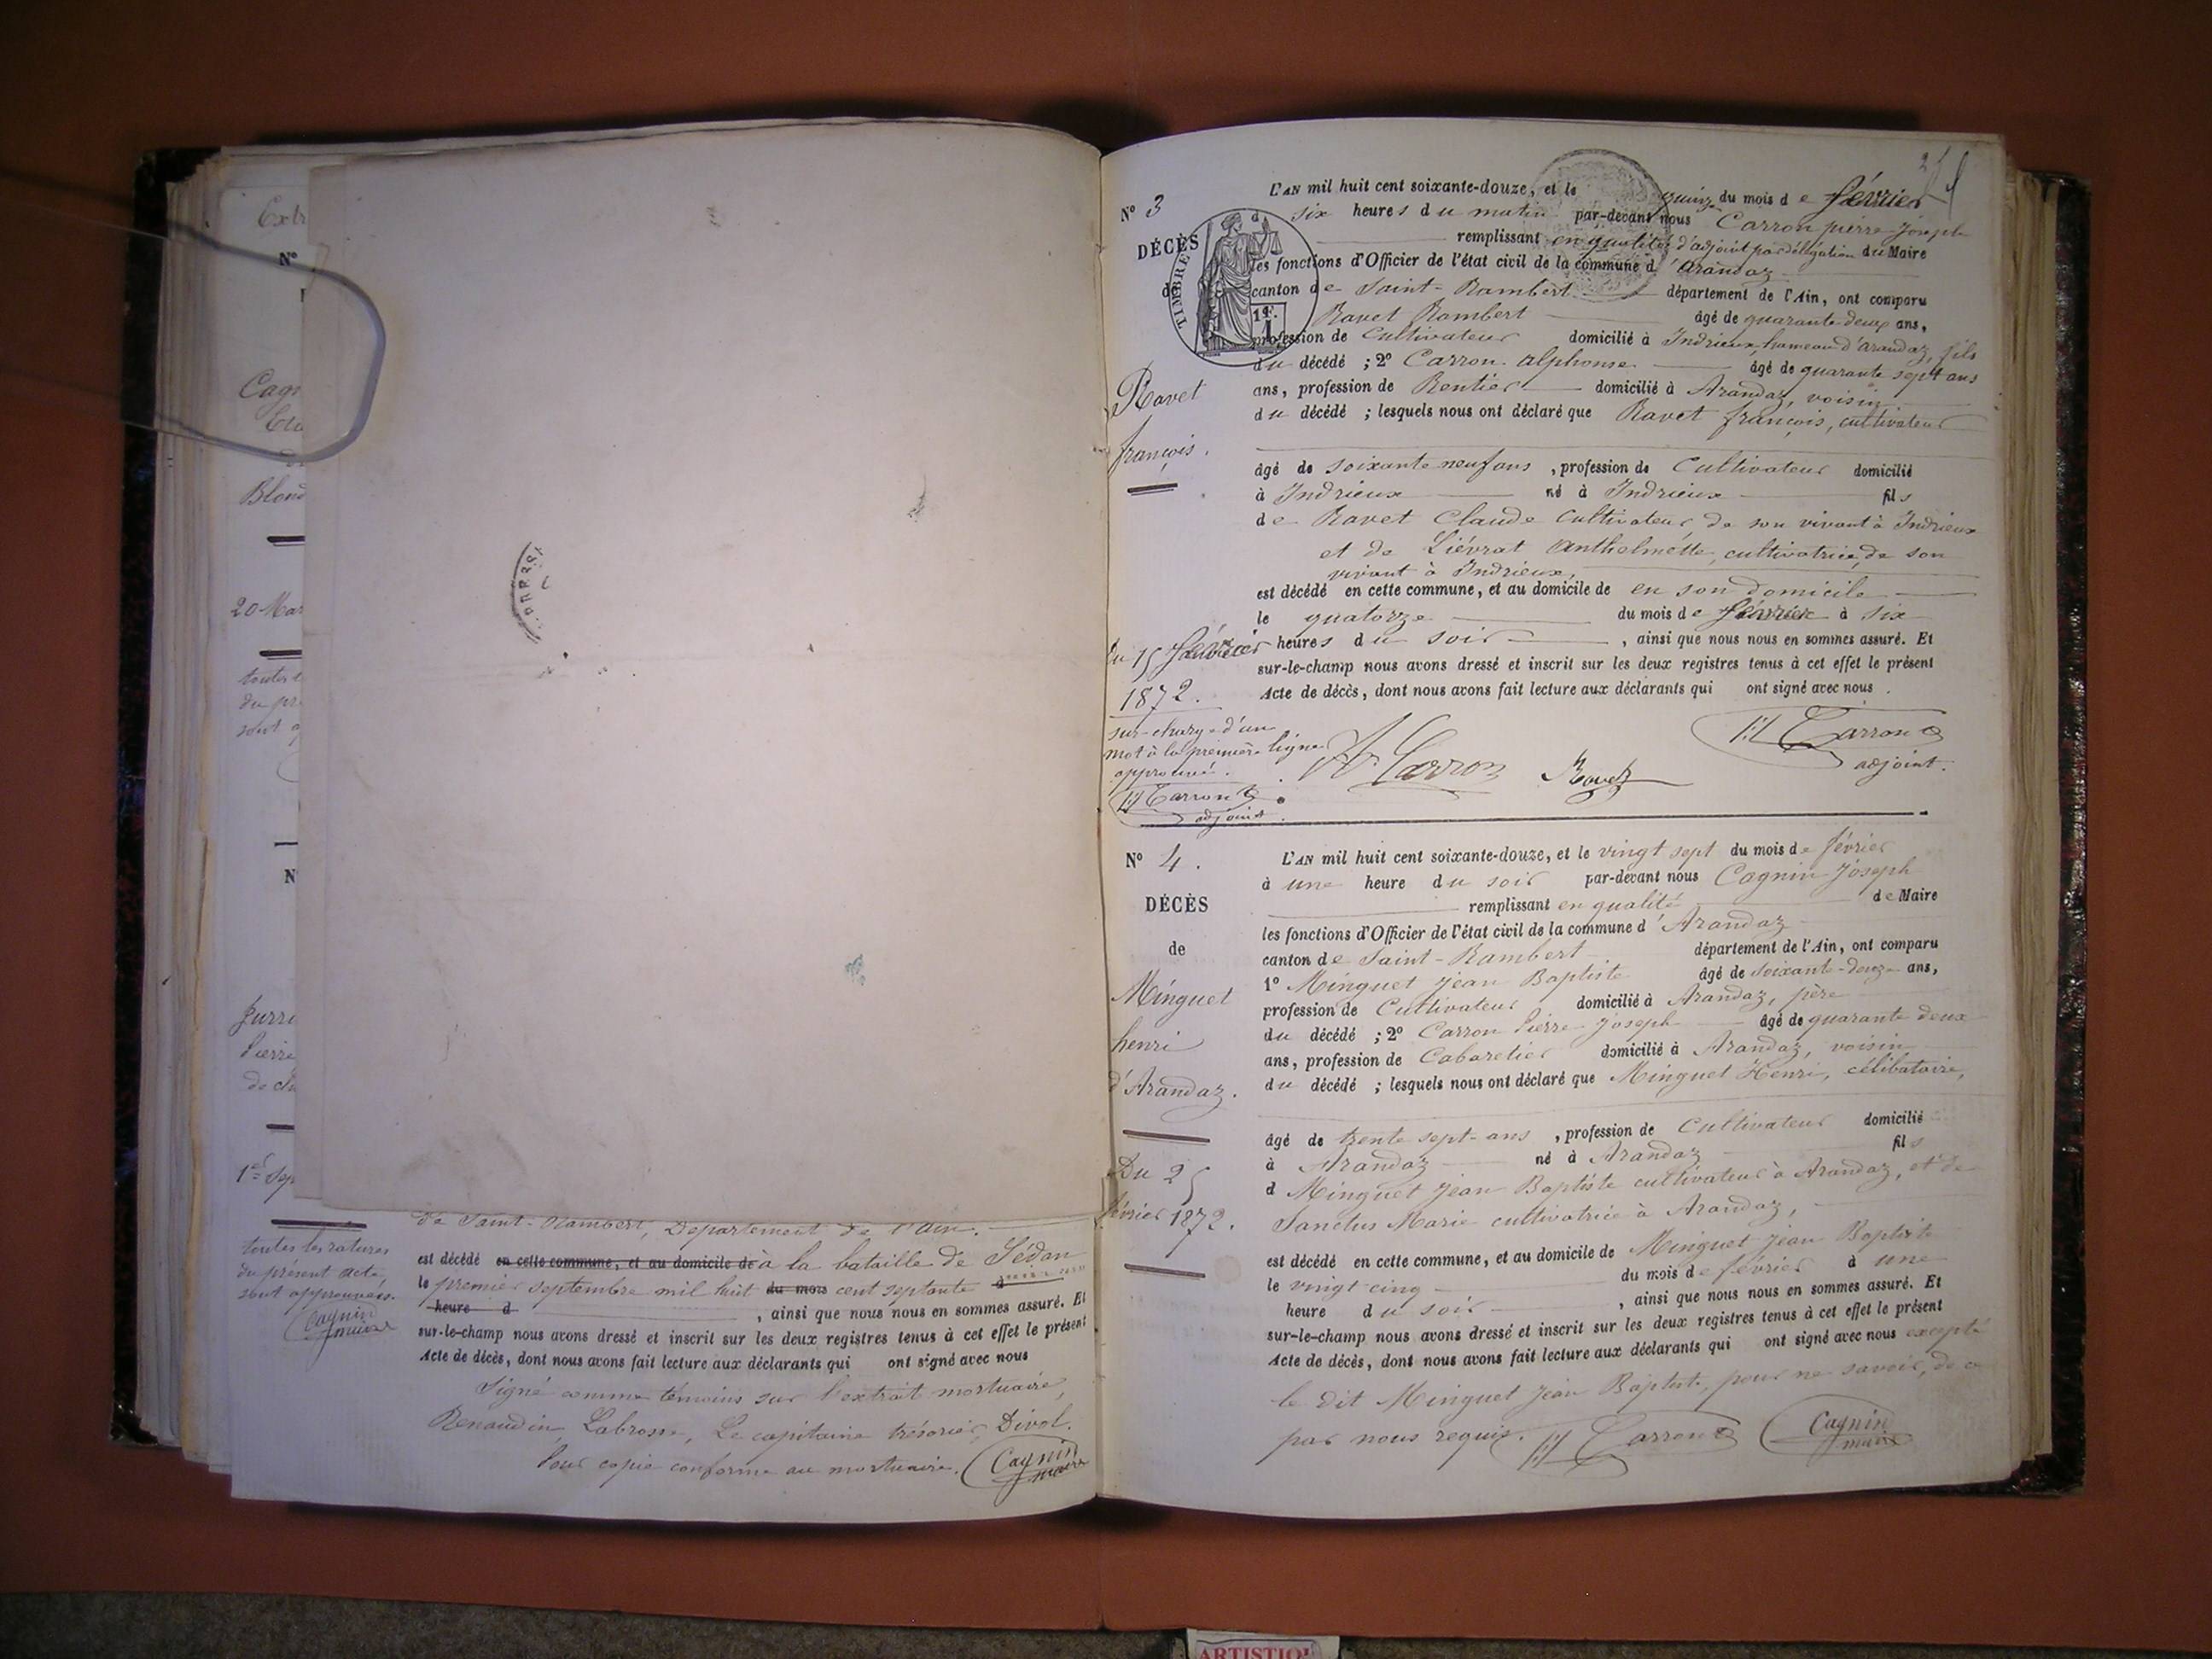 Extr
N°
Cagn
Blond
20 Mar
toutes
du pr
sont
N
Jurr
Pierre
1er Sep
toutes les ratures
du présent acte,
sont approuvées.
Cagnin
maire
de Saint-Rambert, Département de l'Ain.
est décédé en cette commune, et au domicile de à la bataille de Sédan
le premier septembre mil huit du mois cent septante
heure d , ainsi que nous nous en sommes assuré. Et
sur-le-champ nous avons dressé et inscrit sur les deux registres tenus à cet effet le présent
Acte de décès, dont nous avons fait lecture aux déclarants qui ont signé avec nous
Signé comme témoins sur l'extrait mortuaire,
Renaudin, Labrosse, Le capitaine trésorier, Divol.
Pour copie conforme au mortuaire. Cagnin
maire
N° 3
DÉCÈS
de
TIMBRE
1 F.
Ravet
françois.
Du 15 février
1872.
sur-charge d'un
mot à la première ligne
approuvé.
Carron
adjoint.
L'AN mil huit cent soixante-douze, et le quinze du mois de février
six heures du matin par-devant nous Carron pierre Joseph
remplissant en qualité d'adjoint par délégation du Maire
les fonctions d'Officier de l'état civil de la commune d'Arandaz
canton de Saint-Rambert département de l'Ain, ont comparu
Ravet Rambert âgé de quarante-deux ans,
profession de Cultivateur domicilié à Indrieux, hameau d'Arandaz, fils
du décédé ; 2° Carron alphonse âgé de quarante sept ans
ans, profession de Rentier domicilié à Arandaz, voisin
du décédé ; lesquels nous ont déclaré que Ravet françois, cultivateur
âgé de soixante neuf ans , profession de Cultivateur domicilié
à Indrieux né à Indrieux fils
de Ravet Claude Cultivateur de son vivant à Indrieux
et de Liévrat Anthelmette, cultivatrice, de son
vivant à Indrieux,
est décédé en cette commune, et au domicile de en son domicile
le quatorze du mois de février à six
heures du soir , ainsi que nous nous en sommes assuré. Et
sur-le-champ nous avons dressé et inscrit sur les deux registres tenus à cet effet le présent
Acte de décès, dont nous avons fait lecture aux déclarants qui ont signé avec nous.
A. Carron Ravet Carron
adjoint.
N° 4.
DÉCÈS
de
Minguet
henri
d'Arandaz.
Du 25
février 1872.
L'AN mil huit cent soixante-douze, et le vingt sept du mois de février
à une heure du soir par-devant nous Cagnin Joseph
remplissant en qualité de Maire
les fonctions d'Officier de l'état civil de la commune d'Arandaz
canton de Saint-Rambert département de l'Ain, ont comparu
1° Minguet Jean Baptiste âgé de soixante-douze ans,
profession de Cultivateur domicilié à Arandaz, père
du décédé ; 2° Carron Pierre Joseph âgé de quarante deux
ans, profession de Cabaretier domicilié à Arandaz, voisin
du décédé ; lesquels nous ont déclaré que Minguet Henri, célibataire,
âgé de trente sept ans , profession de Cultivateur domicilié
à Arandaz né à Arandaz fils
d Minguet Jean Baptiste cultivateur à Arandaz, et de
Sanctus Marie cultivatrice à Arandaz,
est décédé en cette commune, et au domicile de Minguet Jean Baptiste
le vingt cinq du mois de février à une
heure du soir , ainsi que nous nous en sommes assuré. Et
sur-le-champ nous avons dressé et inscrit sur les deux registres tenus à cet effet le présent
Acte de décès, dont nous avons fait lecture aux déclarants qui ont signé avec nous excepté
le dit Minguet Jean Baptiste, pour ne savoir, de ce
par nous requis. Carron Cagnin
maire
ARTISTIQ